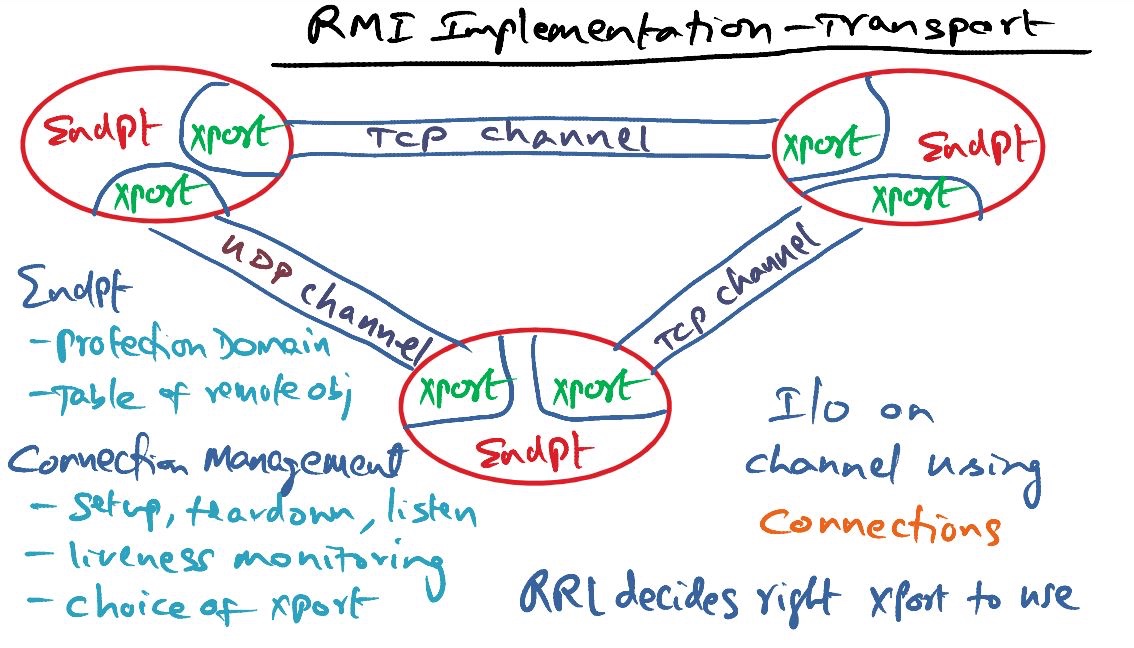 RMI Implementation - Transport
Endpt
xport
TCP channel
xport
Endpt
xport
xport
UDP channel
TCP channel
Endpt
- Protection Domain
- Table of remote obj
xport
xport
Endpt
Connection Management
- setup, teardown, listen
- liveness monitoring
- choice of xport
I/O on
channel using
Connections
RRL decides right xport to use